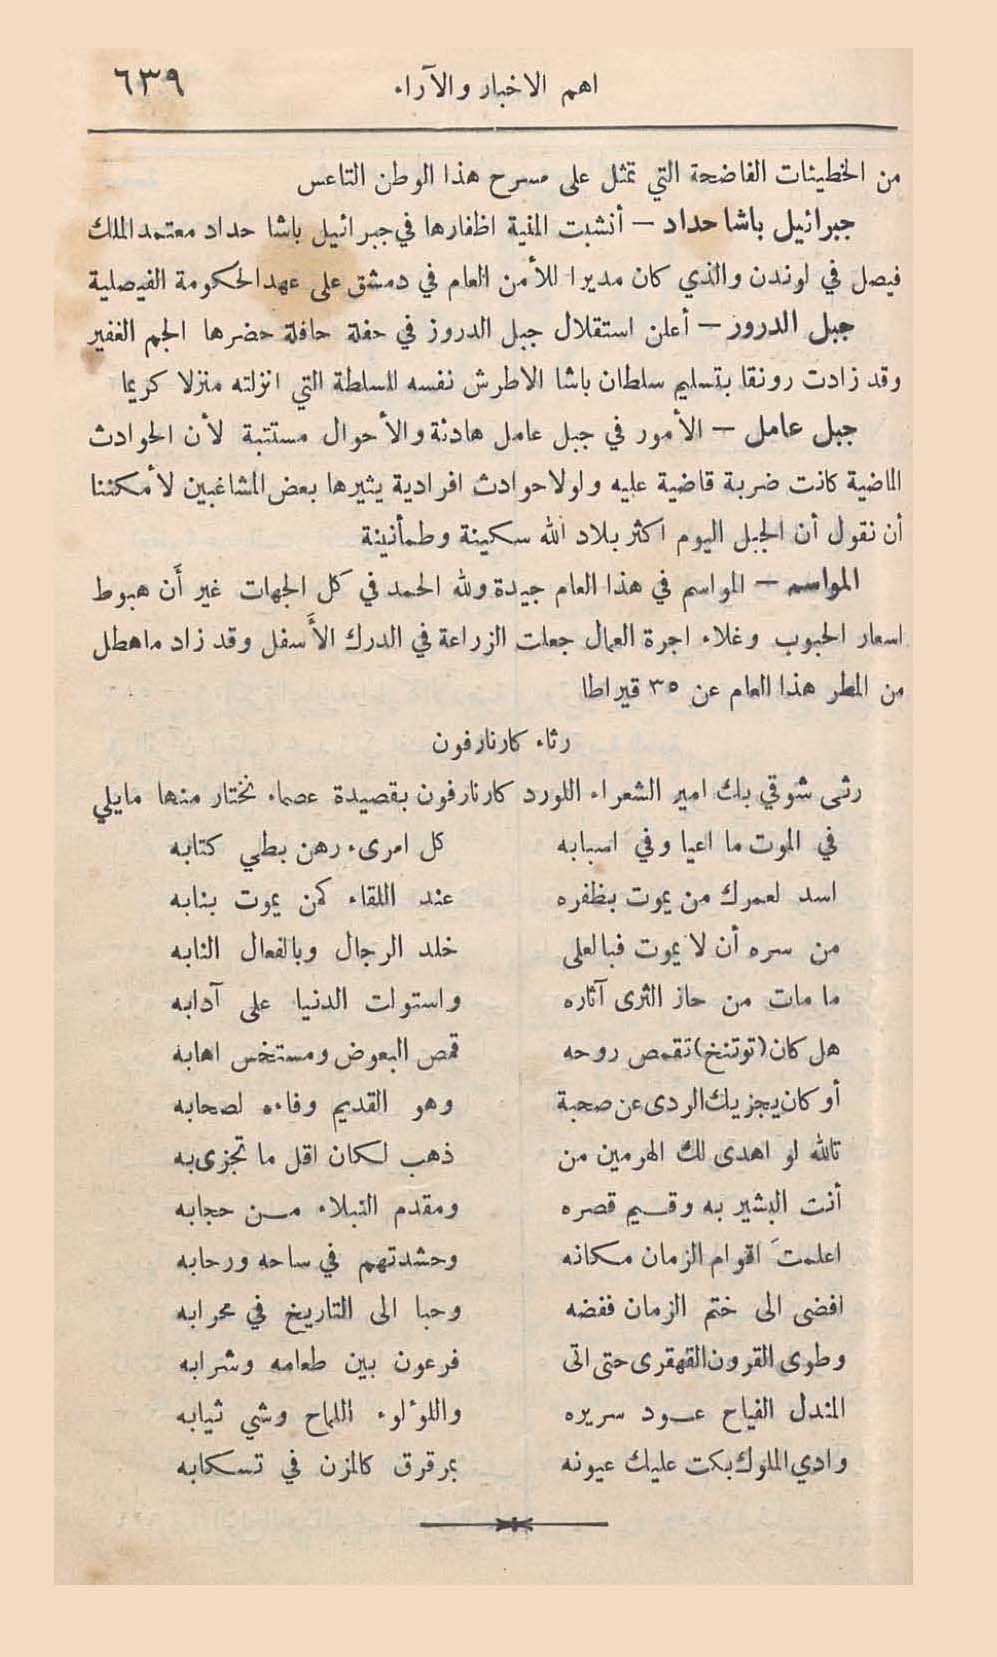 اهم الاخبار والآراء
٦٣٩
من الخطيئات الفاضحة التي تمثل على مسرح هذا الوطن التاعس
جبرائيل باشا حداد — أنشبت المنية اظفارها في جبرائيل باشا حداد معتمد الملك
فيصل في لوندن والذي كان مديرا للأمن العام في دمشق على عهد الحكومة الفيصلية
جبل الدروز — أعلن استقلال جبل الدروز في حفلة حافلة حضرها الجم الغفير
وقد زادت رونقا بتسليم سلطان باشا الاطرش نفسه للسلطة التي انزلته منزلا كريما
جبل عامل — الأمور في جبل عامل هادئة والأحوال مستتبة لأن الحوادث
الماضية كانت ضربة قاضية عليه ولولا حوادث افرادية يثيرها بعض المشاغبين لأمكننا
أن نقول أن الجبل اليوم اكثر بلاد الله سكينة وطمأنينة
المواسم — المواسم في هذا العام جيدة ولله الحمد في كل الجهات غير أَن هبوط
اسعار الحبوب وغلاء اجرة العمال جعلت الزراعة في الدرك الأَسفل وقد زاد ماهطل
من المطر هذا العام عن ٣٥ قيراطا
رثاء كارنارفون
رثى شوقي بك امير الشعراء اللورد كارنارفون بقصيدة عصماء نختار منها مايلي
في الموت ما اعيا وفي اسبابه كل امرىء رهن بطي كتابه
اسد لعمرك من يموت بظفره عند اللقاء كمن يموت بنابه
من سره أن لا يموت فبالعلى خلد الرجال وبالفعال النابه
ما مات من حاز الثرى آثاره واستولت الدنيا على آدابه
هل كان (توتنخ) تقمص روحه قمص البعوض ومستخس اهابه
أو كان يجزيك الردى عن صحبة وهو القديم وفاءه لصحابه
تالله لو اهدى لك الهرمين من ذهب لكان اقل ما تجزى به
أنت البشير به وقيم قصره ومقدم النبلاء من حجابه
اعلمتَ اقوام الزمان مكانه وحشدتهم في ساحه ورحابه
افضى الى ختم الزمان ففضه وحبا الى التاريخ في محرابه
وطوى القرون القهقرى حتى اتى فرعون بين طعامه وشرابه
المندل الفياح عود سريره واللؤلوء اللماح وشي ثيابه
وادي الملوك بكت عليك عيونه بمرقرق كالمزن في تسكابه